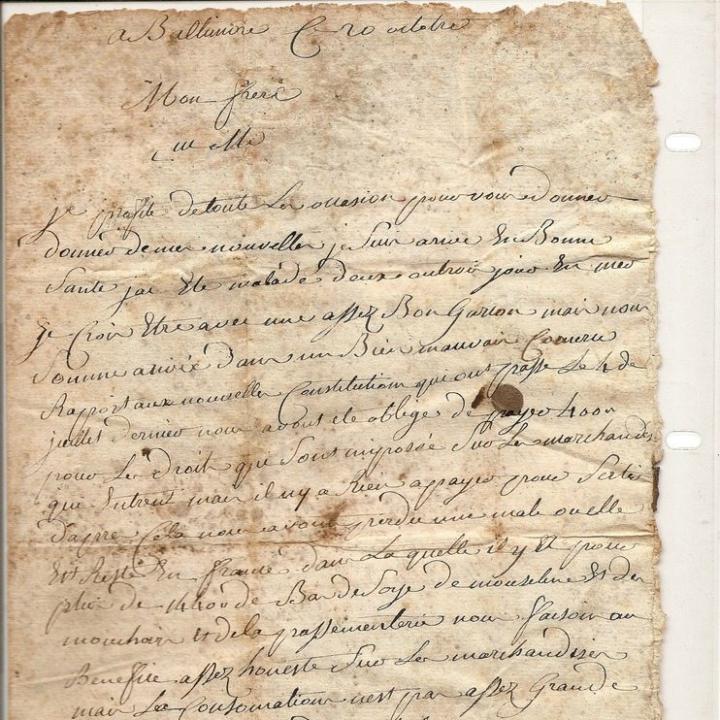 a Baltimore Ce 20 octobre
Mon frere
je profite de toute Les ocasion pour vour donner
donner de mes nouvelles je Suis arivé En Bonne
Santé jai Eté malade deux outrois jour En mer
je Croi Etre avec une assez Bon Garson mais nous
Somme arivée Dans un Bien mauvais
Raport aux nouvelle Constitution que ont passe Le 4 de
juillet dernier nous avons ete oblige de payer
pour Les droit qui Sont imposse Sur Les marchandis
qui Entrent mais il ny a Rien a payer pour
dapre Cela nous avons perdu une male ou elle
Est Resté En france dans La quelle il y Et pour
plus de Bas de Soye de mouseline Et des
mouchoirs Et de la passementerie nous faison un
Benefice assez honeste Sur Les marchandises
mais La Consomation n'est pas assez Grande